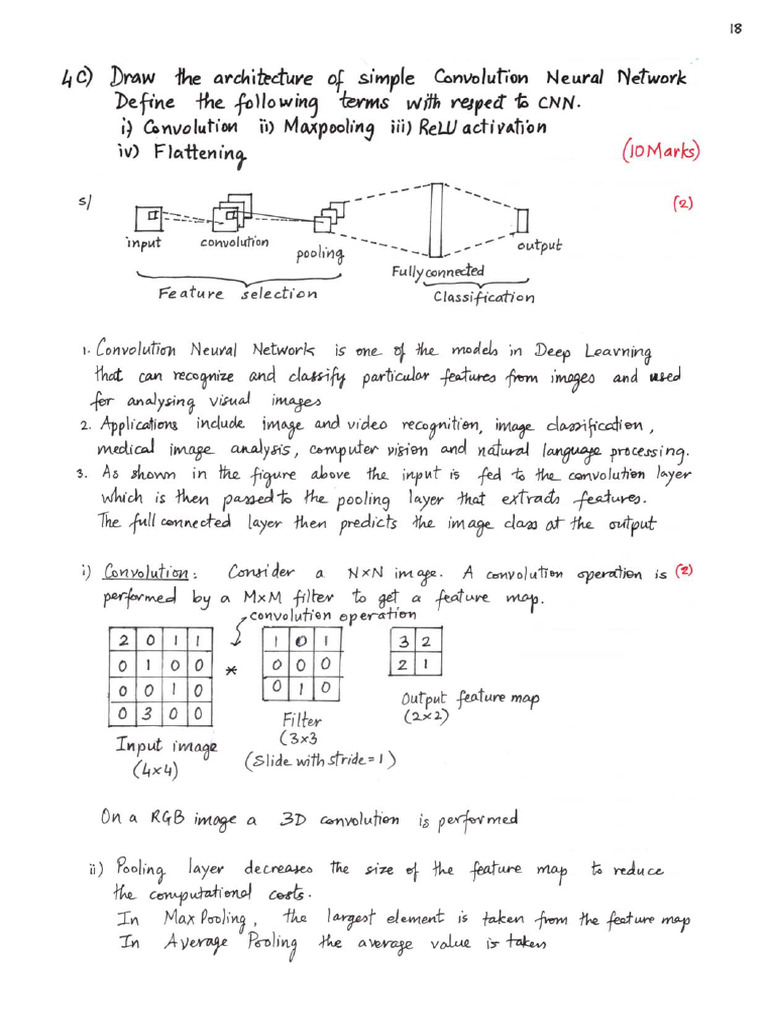 18
4C) Draw the architecture of simple Convolution Neural Network
Define the following terms with respect to CNN.
i) Convolution ii) Maxpooling iii) ReLU activation
iv) Flattening (10 Marks)
s/ (2)
input convolution pooling Fully connected output
Feature selection Classification
1. Convolution Neural Network is one of the models in Deep Learning
that can recognize and classify particular features from images and used
for analysing visual images
2. Applications include image and video recognition, image classification,
medical image analysis, computer vision and natural language processing.
3. As shown in the figure above the input is fed to the convolution layer
which is then passed to the pooling layer that extracts features.
The full connected layer then predicts the image class at the output
i) Convolution: Consider a N×N image. A convolution operation is (2)
performed by a M×M filter to get a feature map.
convolution operation
2 0 1 1 1 0 1 3 2
0 1 0 0 * 0 0 0 2 1
0 0 1 0 0 1 0
0 3 0 0
Output feature map
(2×2)
Filter
(3×3
Input image
(4×4)
(Slide with stride=1)
On a RGB image a 3D convolution is performed
ii) Pooling layer decreases the size of the feature map to reduce
the computational costs.
In Max Pooling, the largest element is taken from the feature map
In Average Pooling the average value is taken